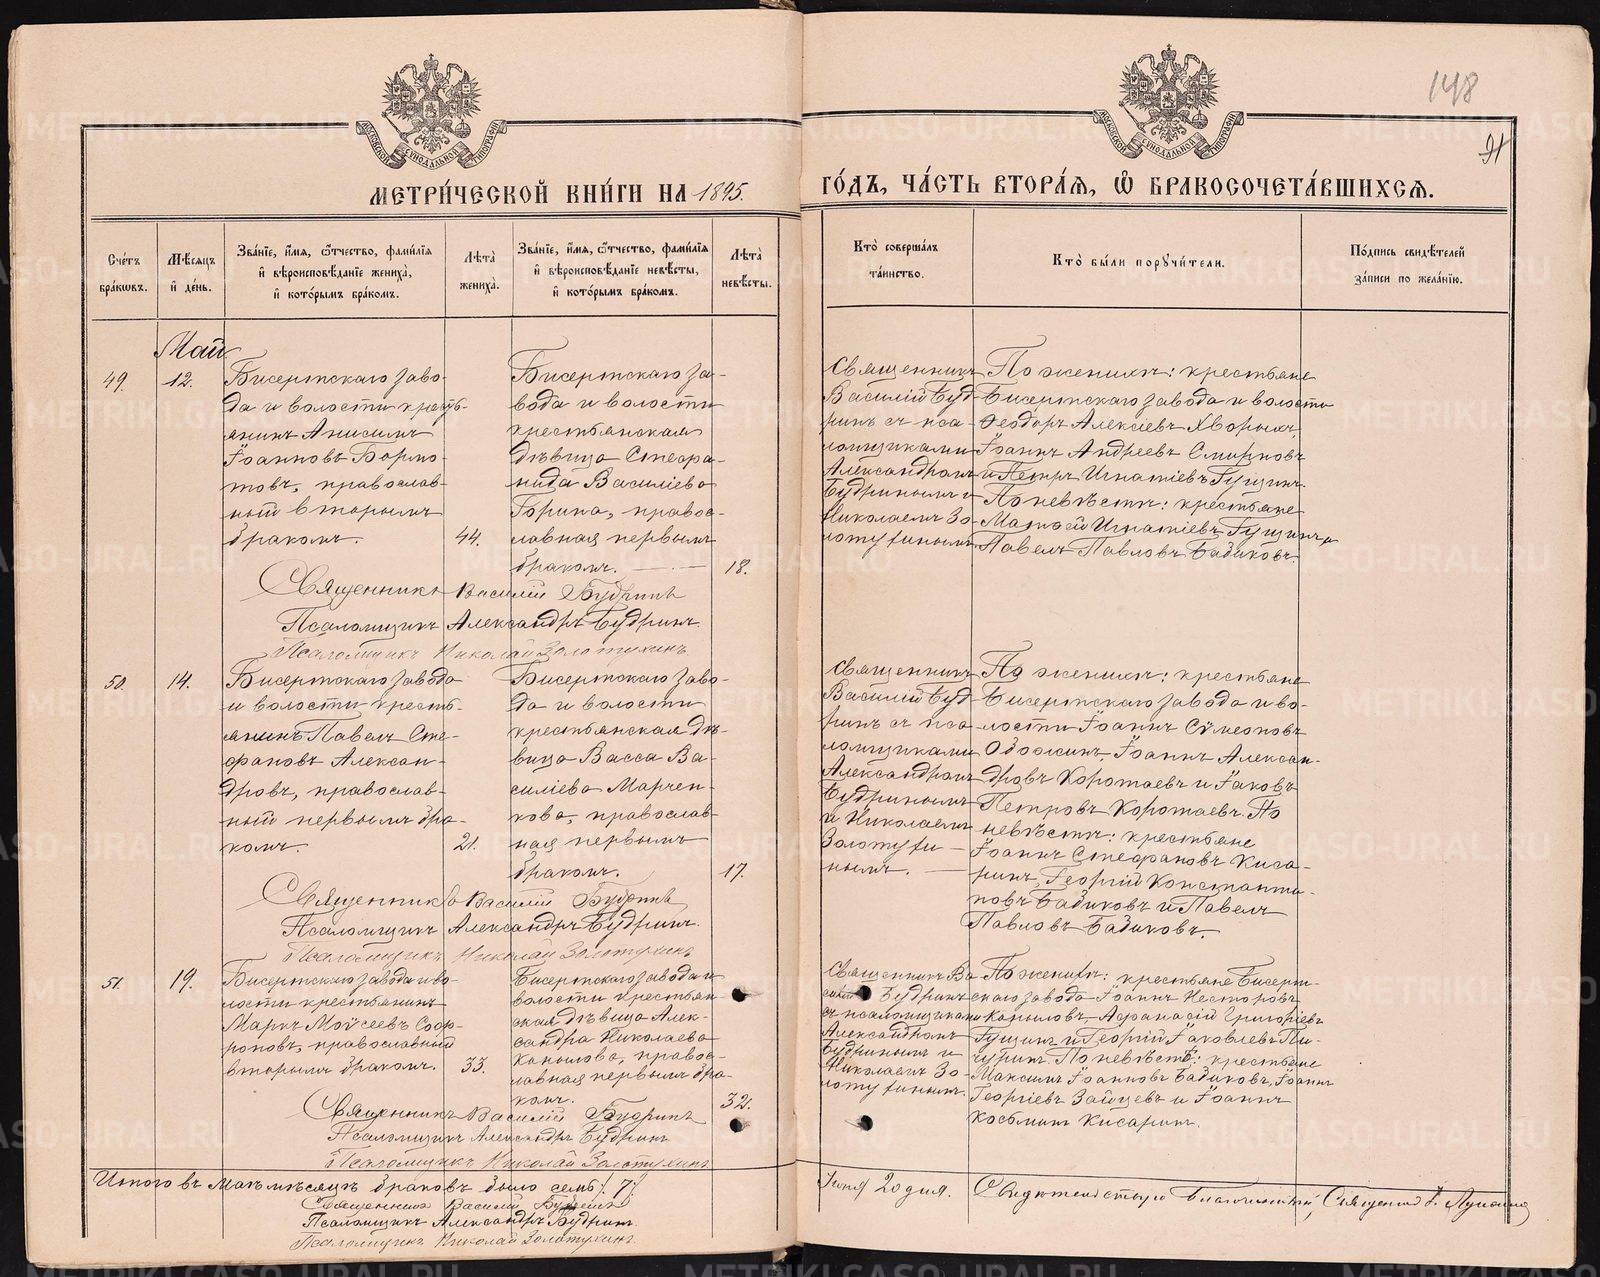 148
91
МОСКОВСКОЙ СѴНОДАЛЬНОЙ ТИПОГРАФІИ
МОСКОВСКОЙ СѴНОДАЛЬНОЙ ТИПОГРАФІИ
МЕТРИ́ЧЕСКОЙ КНИ́ГИ НА 1895.
ГО́ДЪ, ЧА́СТЬ ВТОРА́Ѧ, Ѽ БРАКОСОЧЕТА́ВШИХСѦ.
Сче́тъ
бра́кѡвъ.
Мѣ́сѧцъ
и҆ де́нь.
Зва́нїе, и҆́мѧ, ѻ҆́тчество, фами́лїѧ
и҆ вѣроисповѣ́данїе жениха̀,
и҆ кото́рымъ бра́комъ.
Лѣта̀
жениха̀.
Зва́нїе, и҆́мѧ, ѻ҆́тчество, фами́лїѧ
и҆ вѣроисповѣ́данїе невѣ́сты,
и҆ кото́рымъ бра́комъ.
Лѣта̀
невѣ́сты.
Кто̀ соверша́лъ
та́инство.
Кто̀ бы́ли порꙋчи́тели.
По́дпись свидѣ́телей
за́писи по жела́нїю.
Май
49.
12.
Бисертскаго заво-
да и волости кресть-
янинъ Анисимъ
Іоанновъ Бормо-
товъ, православ-
ный вторымъ
бракомъ.
44.
Бисертскаго за-
вода и волости
крестьянская
дѣвица Стефа-
нида Василіева
Горина, правос-
лавная первымъ
бракомъ.
18.
Священникъ
Василій Буд-
ринъ съ пса-
ломщиками
Александромъ
Будринымъ и
Николаемъ Зо-
лотухинымъ
По женихѣ: крестьяне
Бисертскаго завода и волости
Ѳеодоръ Алексіевъ Хворыхъ,
Іоаннъ Андреевъ Смирновъ
и Петръ Игнатіевъ Гущинъ.
По невѣстѣ: крестьяне
Матѳей Игнатіевъ Гущинъ и
Павелъ Павловъ Бадиковъ.
Священникъ Василій Будринъ
Псаломщикъ Александръ Будринъ
Псаломщикъ Николай Золотухинъ
50.
14.
Бисертскаго завода
и волости кресть-
янинъ Павелъ Сте-
фановъ Алексан-
дровъ, православ-
ный первымъ бра-
комъ.
21.
Бисертскаго заво-
да и волости
крестьянская дѣ-
вица Васса Ва-
силіева Марчен-
кова, православ-
ная первымъ
бракомъ.
17.
Священникъ
Василій Буд-
ринъ съ пса-
ломщиками
Александромъ
Будринымъ
и Николаемъ
Золотухи-
нымъ.
По женихѣ: крестьяне
Бисертскаго завода и во-
лости Іоаннъ Сѵмеоновъ
Іоаннъ Алексан-
дровъ Коротаевъ и Іаковъ
Петровъ Коротаевъ. По
невѣстѣ: крестьяне
Іоаннъ Стефановъ Киса-
ринъ, Георгій Константи-
новъ Бадиковъ и Павелъ
Павловъ Бадиковъ.
Священникъ Василій Будринъ
Псаломщикъ Александръ Будринъ.
Псаломщикъ Николай Золотухинъ
51.
19.
Бисертскаго завода и во-
лости крестьянинъ
Маркъ Моѵсеевъ Соф-
роновъ, православный
вторымъ бракомъ.
33.
Бисертскаго завода и
волости крестьян-
ская дѣвица Алек-
сандра Николаева
Канылова, правос-
лавная первымъ бра-
комъ.
32.
Священникъ Ва-
силій Будринъ
съ псаломщиками
Александромъ
Будринымъ и
Николаемъ Зо-
лотухинымъ.
По женихѣ: крестьяне Бисерт-
скаго завода Іоаннъ Несторовъ
Аѳанасій Григоріевъ
Гущинъ и Георгій Іаковлевъ Пи-
чуринъ. По невѣстѣ: крестьяне
Максимъ Іоанновъ Бадиковъ, Іоаннъ
Георгіевъ Зайцевъ и Іоаннъ
Косьминъ Кисаринъ.
Священникъ Василій Будринъ
Псаломщикъ Александръ Будринъ
Псаломщикъ Николай Золотухинъ
Итого въ Маѣ мѣсяцѣ браковъ было семь /7/
Священникъ Василій Будринъ
Псаломщикъ Александръ Будринъ
Псаломщикъ Николай Золотухинъ.
Іюня 20 дня. Свидѣтельствую Благочинный, Священ
METRIKI.GASO-URAL.RU